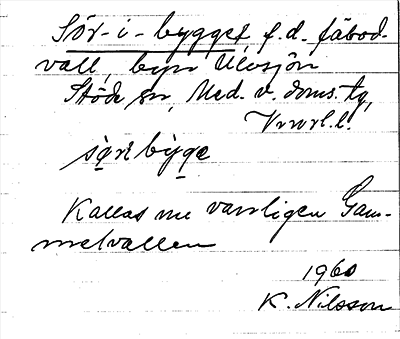 Sör-i-bygget, f.d. fäbod-
vall, byn Ulvsjön
Stöde sn, Med. v. doms. tg,
Vnorl. l.
sö̀ribỳge
Kallas nu vanligen Gam-
melvallen
1960
K. Nilsson